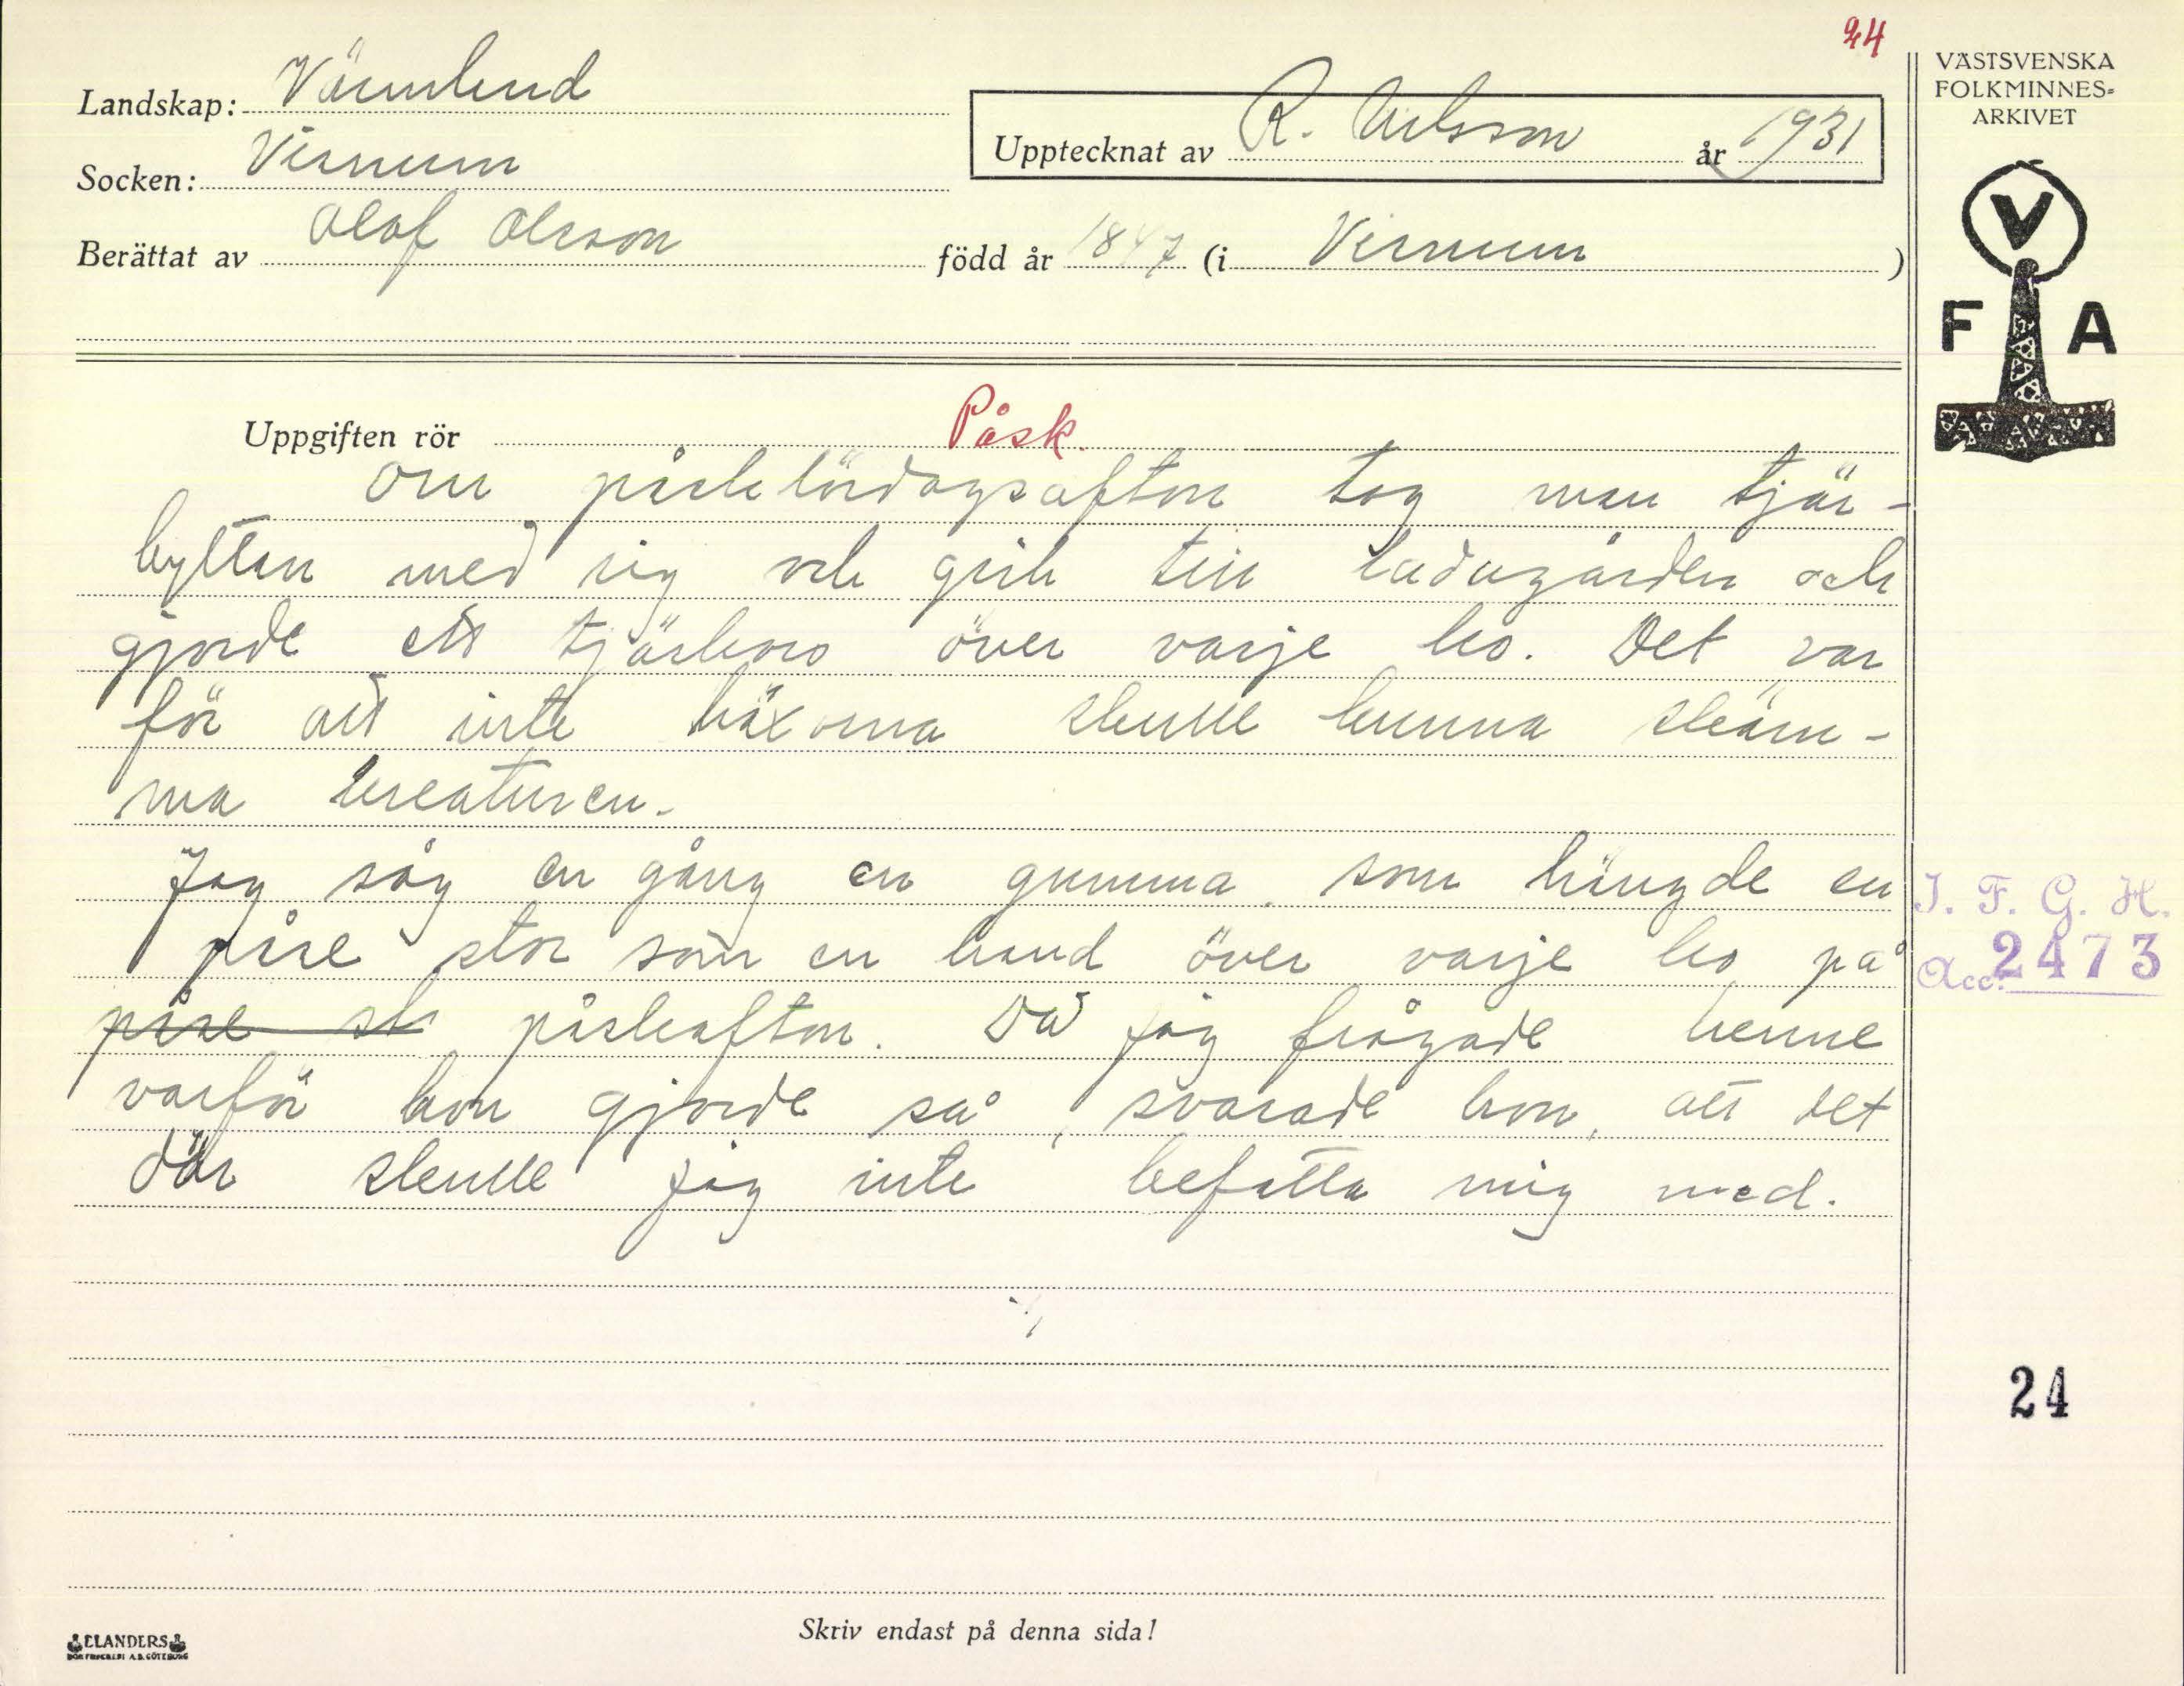 24
Landskap: Värmland
Socken: Visnum
Berättat av Olof Olsson
Upptecknat av R. Nilsson år 1931
född år 1847 (i Visnum)
VÄSTSVENSKA
FOLKMINNES-
ARKIVET
V
F A
Uppgiften rör Påsk.
Om påsklördagsafton tog man tjär-
byttan med sig och gick till ladugården och
gjorde ett tjärkors över varje ko. Det var
för att inte häxorna skulle kunna skäm-
ma kreaturen.
Jag såg en gång en gumma som hängde en
påse stor som en hand över varje ko på
påse st påskafton. Då jag frågade henne
varför hon gjorde så, svarade hon, att det
där skulle jag inte befatta mig med.
I. F. G. H.
Acc. 2473
24
Skriv endast på denna sida!
ELANDERS